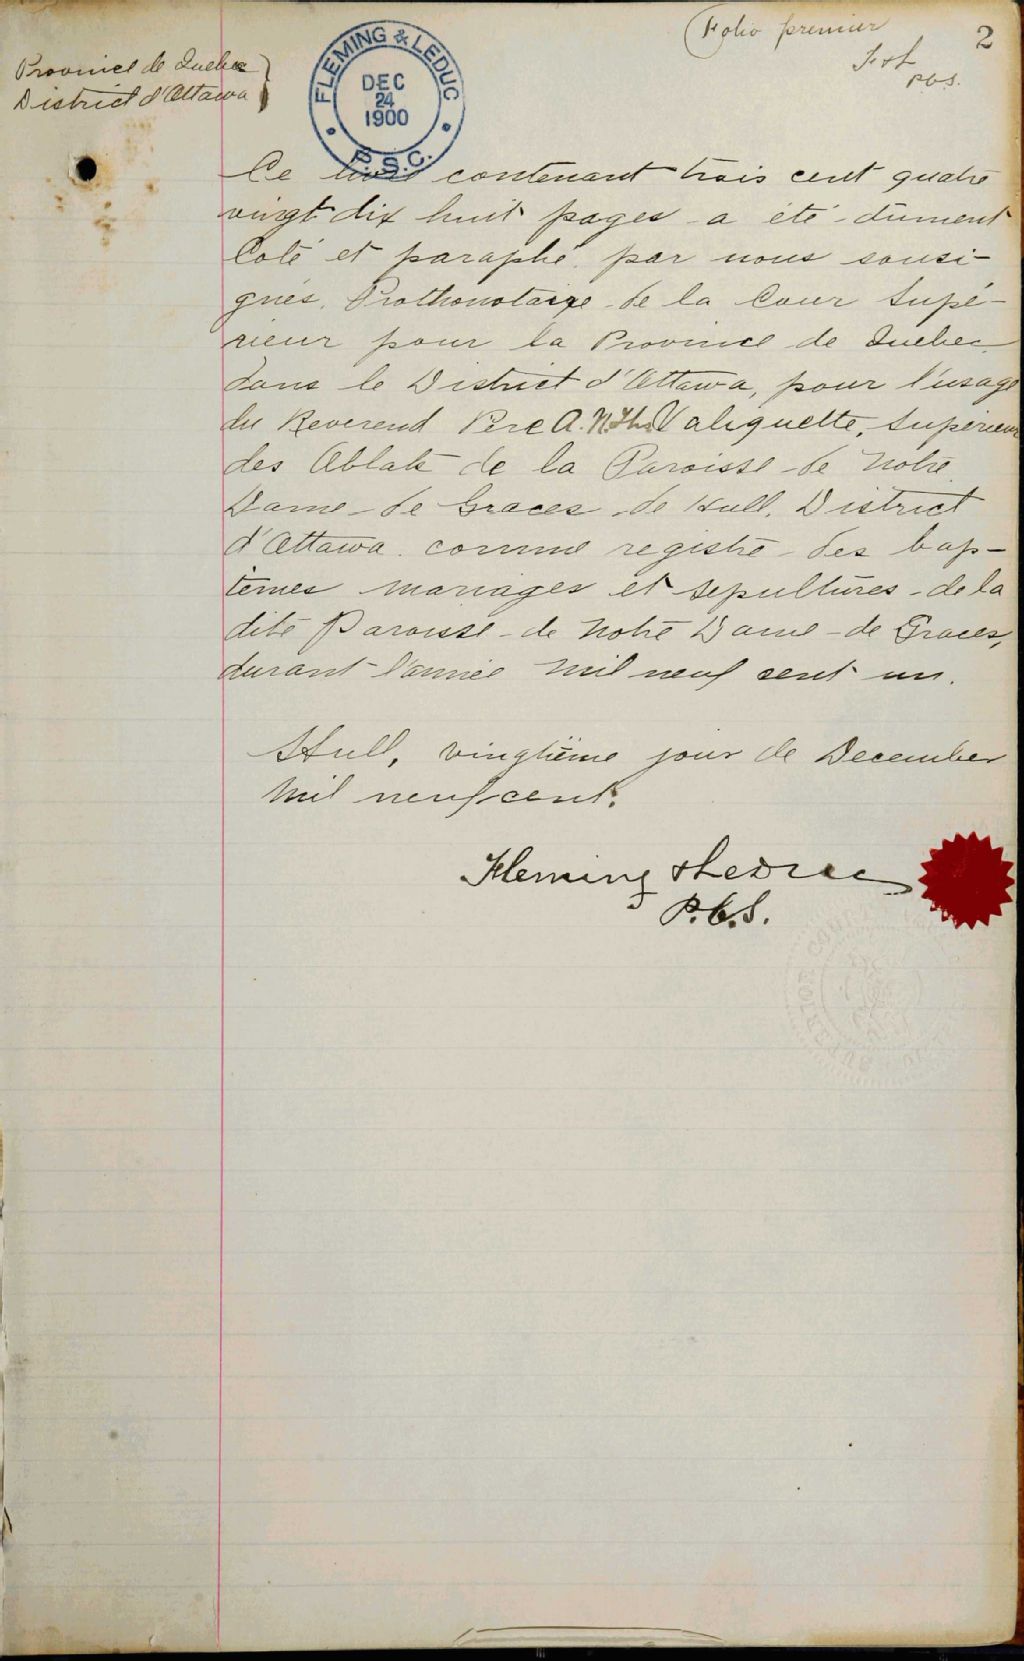 Folio premier
2
F & L
P.C.S.
Province de Quebec
District d'Ottawa
FLEMING & LEDUC
DEC
24
1900
P.S.C.
Ce livre contenant trois cent quatre
vingt dix huit pages a été dûment
Coté et paraphé par nous sousi-
gnés, Prothonotaire de la Cour Supé-
rieur pour la Province de Quebec
dans le District d'Ottawa, pour l'usage
du Reverend Père A. N. Valiquette, Supérieur
des Oblats de la Paroisse de Notre
Dame de Graces de Hull, District
d'Ottawa. comme registre des bap-
têmes mariages et sepultures de la
dite Paroisse de Notre Dame de Graces,
durant l'année mil neuf cent un.
Hull, vingtième jour de December
Mil neuf cent.
Fleming & Leduc
P.C.S.
SUPERIOR COURT